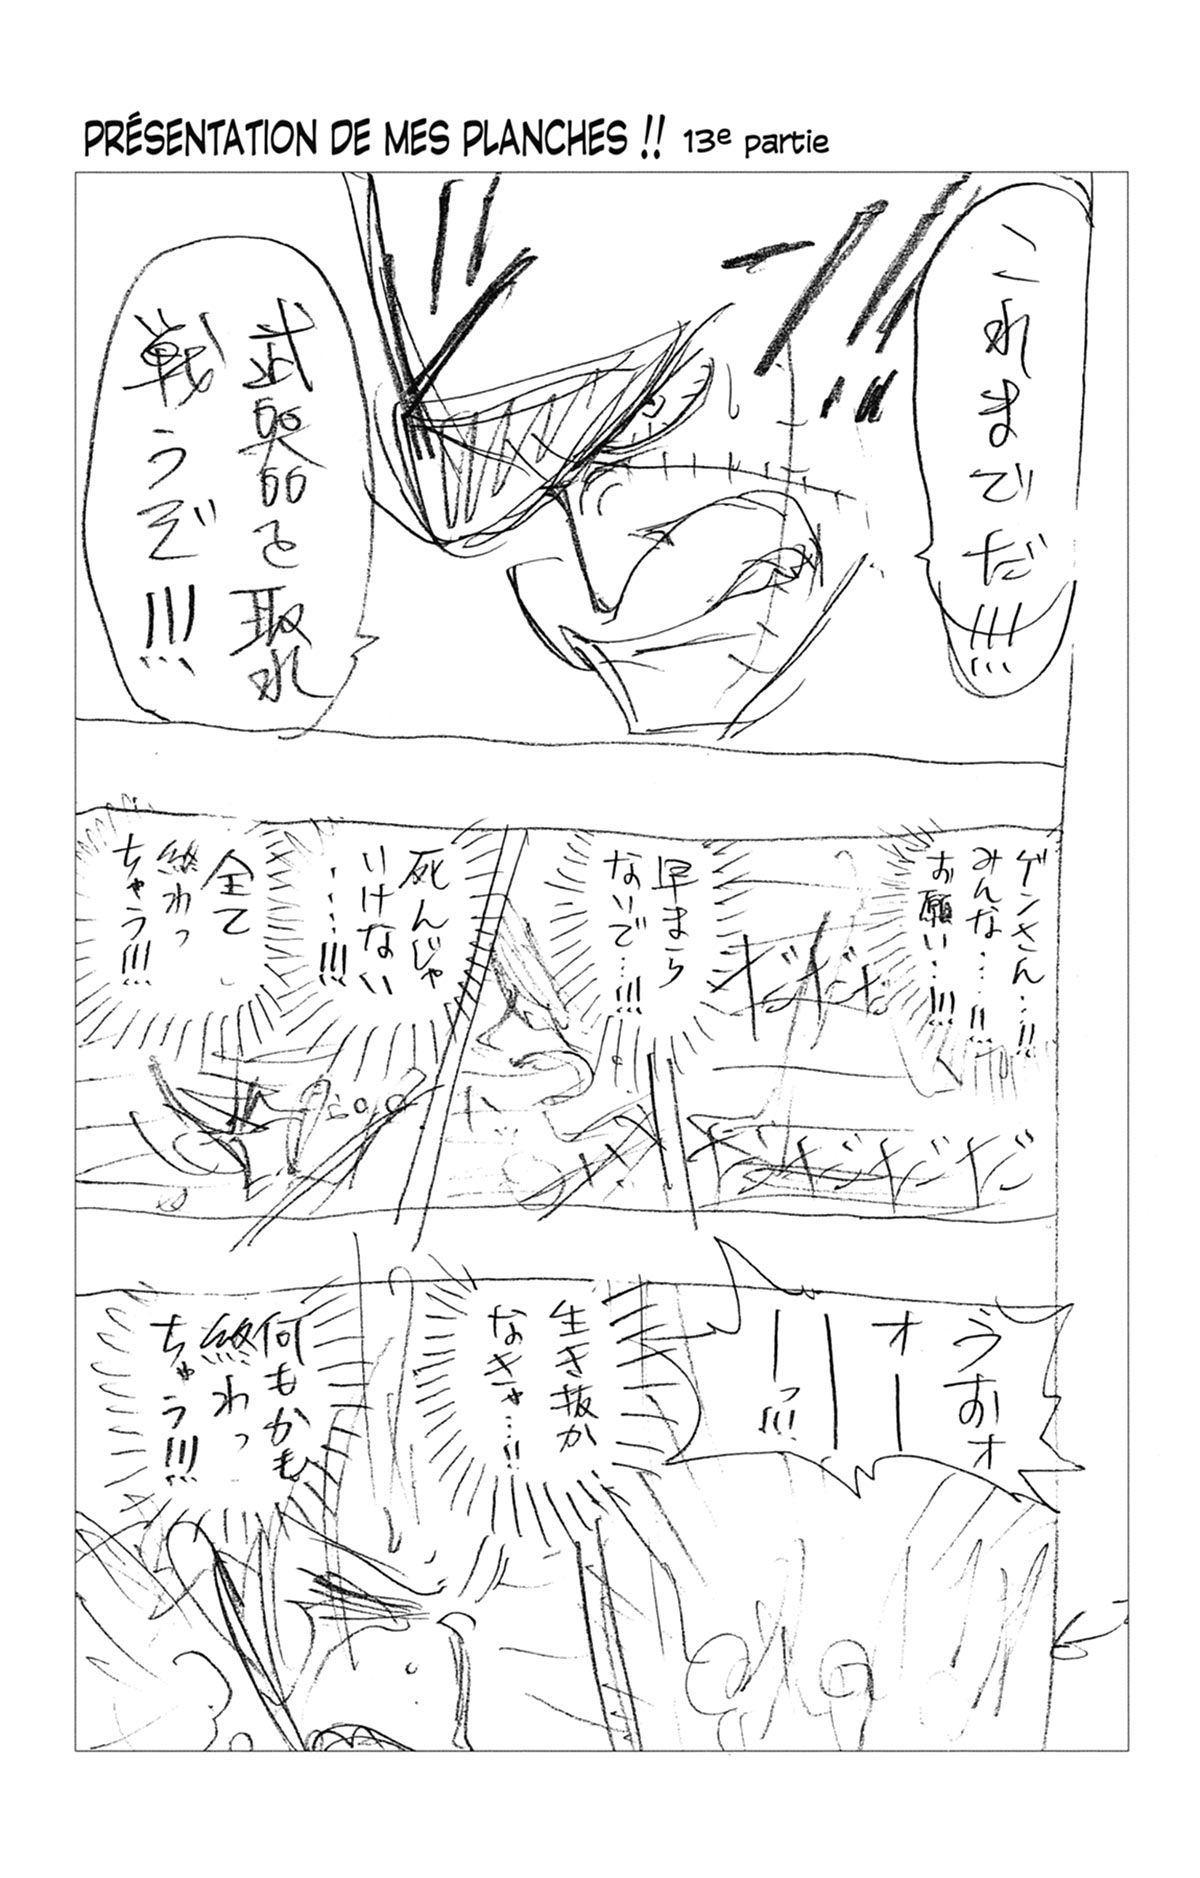 PRÉSENTATION DE MES PLANCHES !! 13e partie
これまでだ!!!
武器を取れ
戦うぞ!!!
ゲンさん…!!
みんな…!!
お願い…!!!
早まら
ないで…!!!
死んじゃ
いけない
……!!!
全て
終わっ
ちゃう!!!
うおォ
オー
ーーっ!!!
生き抜か
なきゃ…!!
何もかも
終わっ
ちゃう!!!